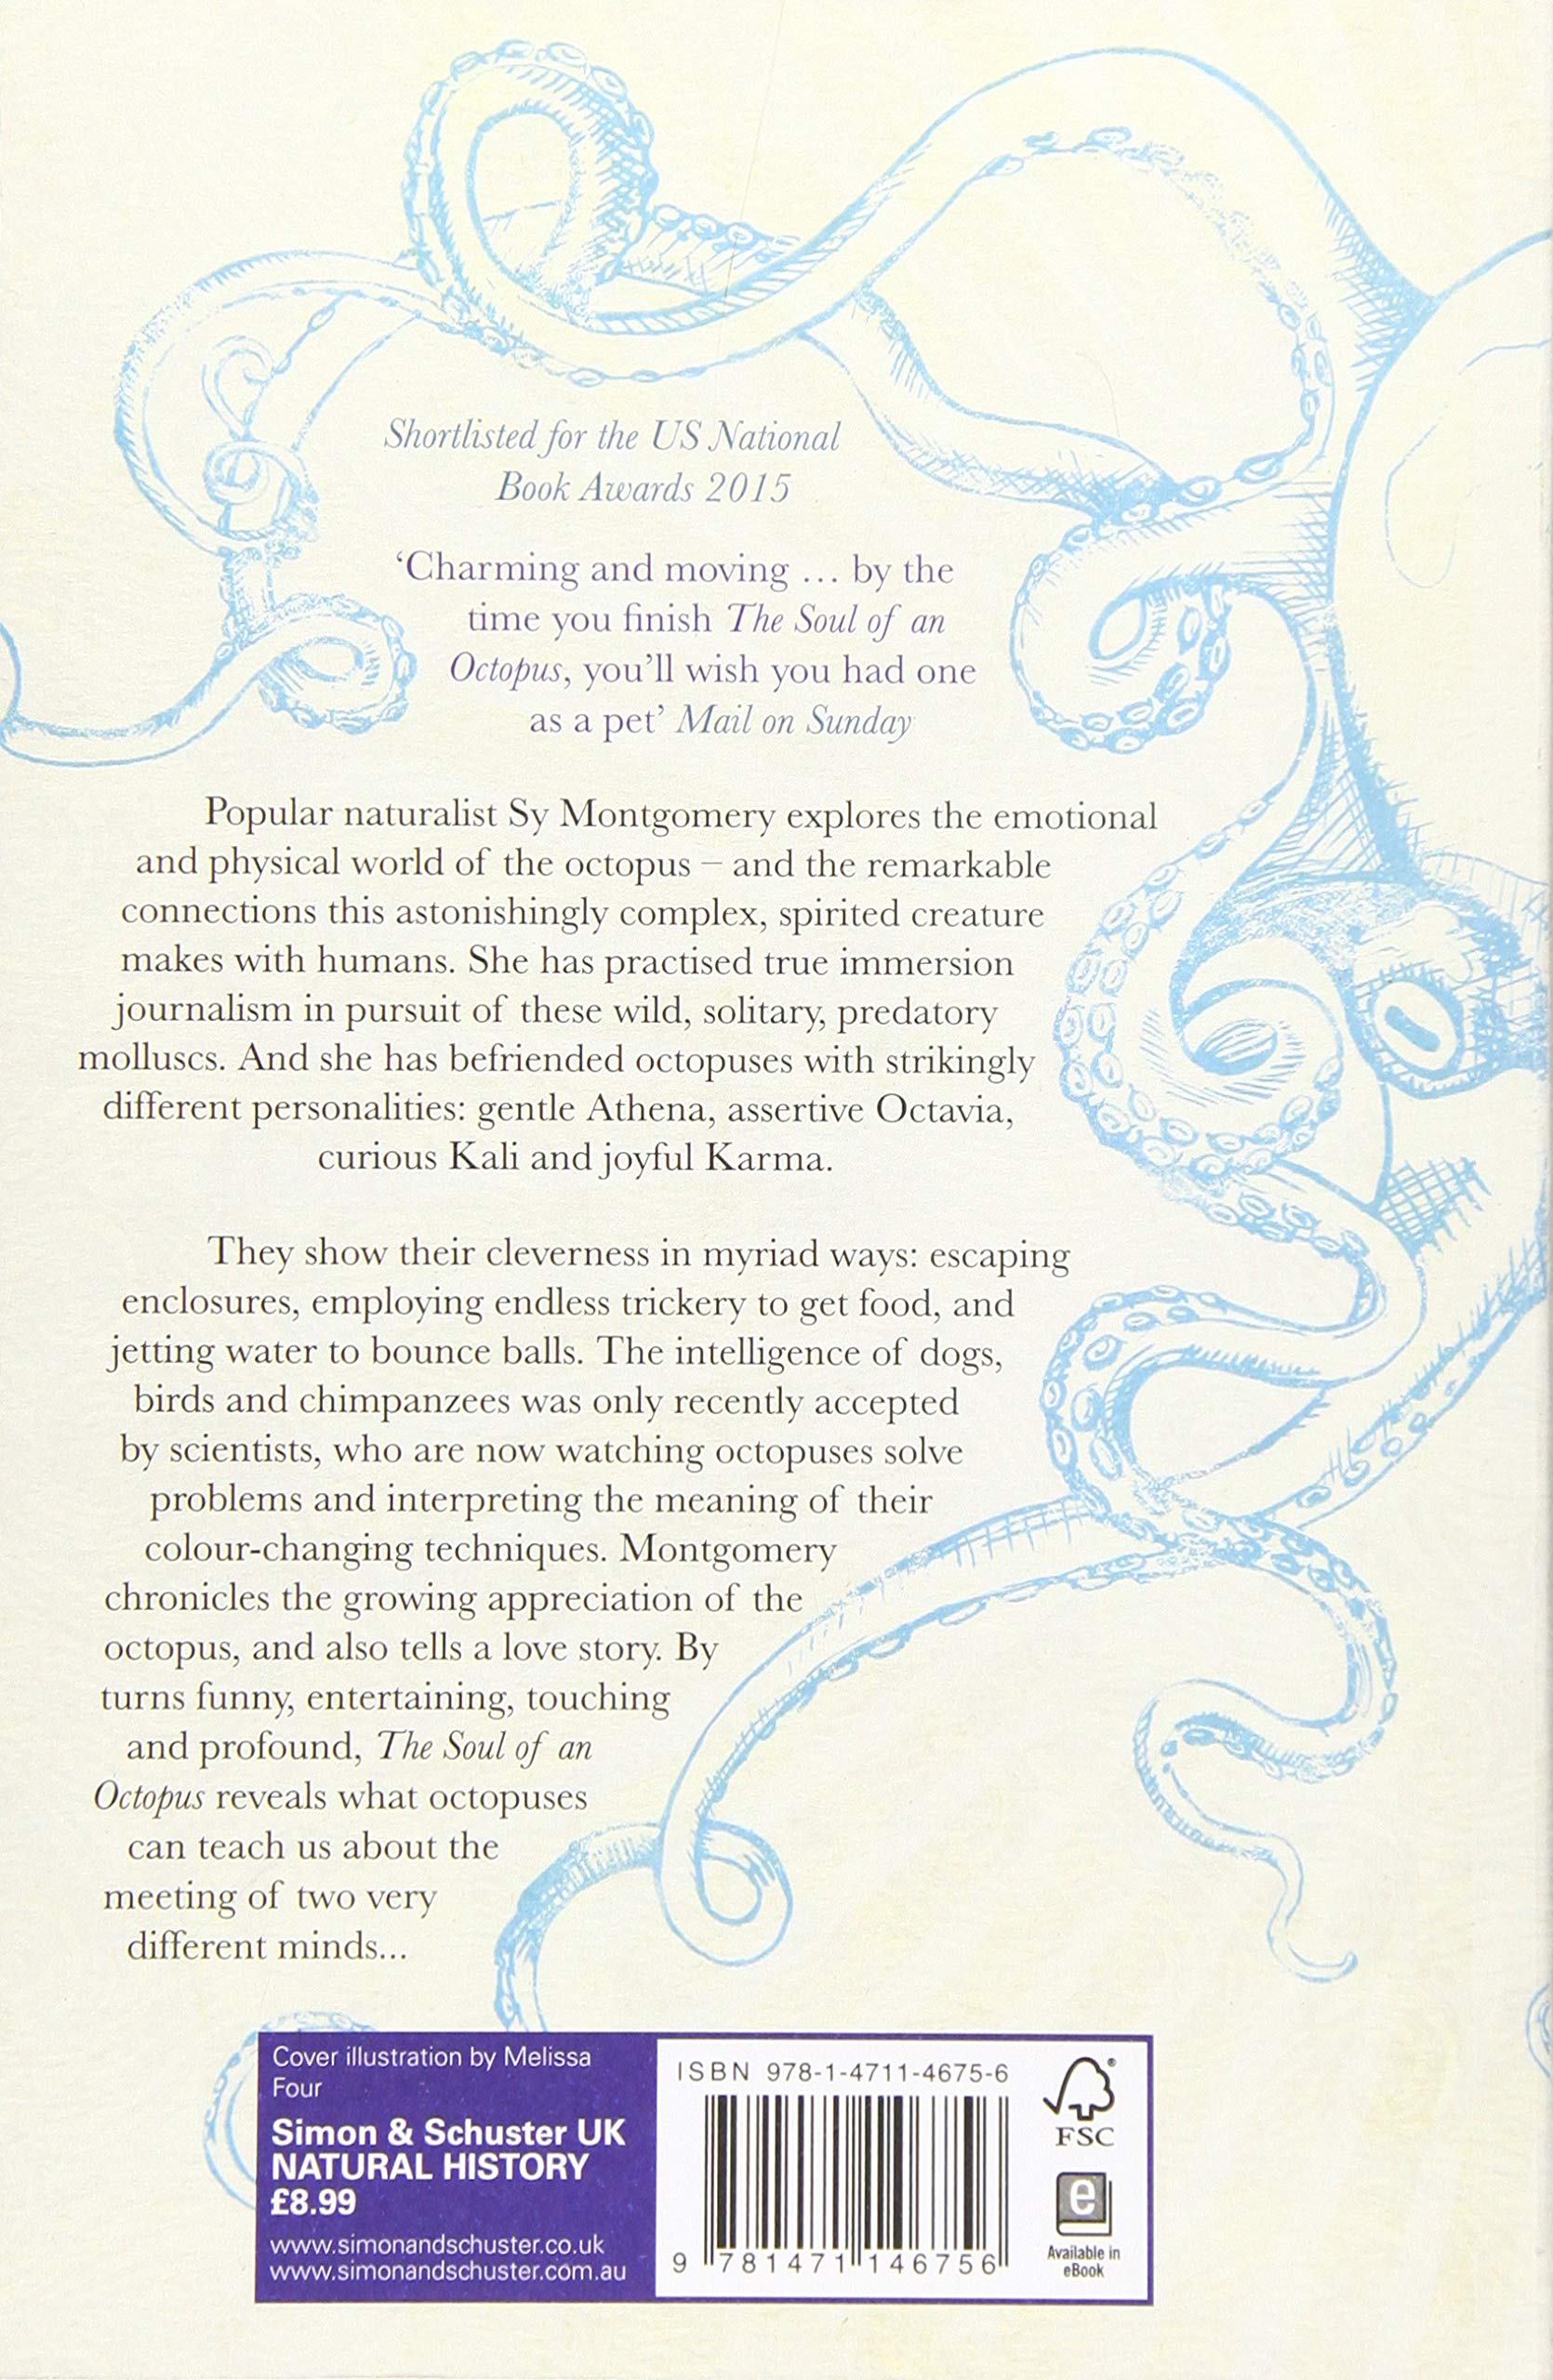 Shortlisted for the US National
Book Awards 2015
‘Charming and moving … by the
time you finish The Soul of an
Octopus, you’ll wish you had one
as a pet’ Mail on Sunday
Popular naturalist Sy Montgomery explores the emotional
and physical world of the octopus – and the remarkable
connections this astonishingly complex, spirited creature
makes with humans. She has practised true immersion
journalism in pursuit of these wild, solitary, predatory
molluscs. And she has befriended octopuses with strikingly
different personalities: gentle Athena, assertive Octavia,
curious Kali and joyful Karma.
They show their cleverness in myriad ways: escaping
enclosures, employing endless trickery to get food, and
jetting water to bounce balls. The intelligence of dogs,
birds and chimpanzees was only recently accepted
by scientists, who are now watching octopuses solve
problems and interpreting the meaning of their
colour-changing techniques. Montgomery
chronicles the growing appreciation of the
octopus, and also tells a love story. By
turns funny, entertaining, touching
and profound, The Soul of an
Octopus reveals what octopuses
can teach us about the
meeting of two very
different minds...
Cover illustration by Melissa
Four
Simon & Schuster UK
NATURAL HISTORY
£8.99
www.simonandschuster.co.uk
www.simonandschuster.com.au
ISBN 978-1-4711-4675-6
9 781471 146756
FSC
®
e
Available in
eBook